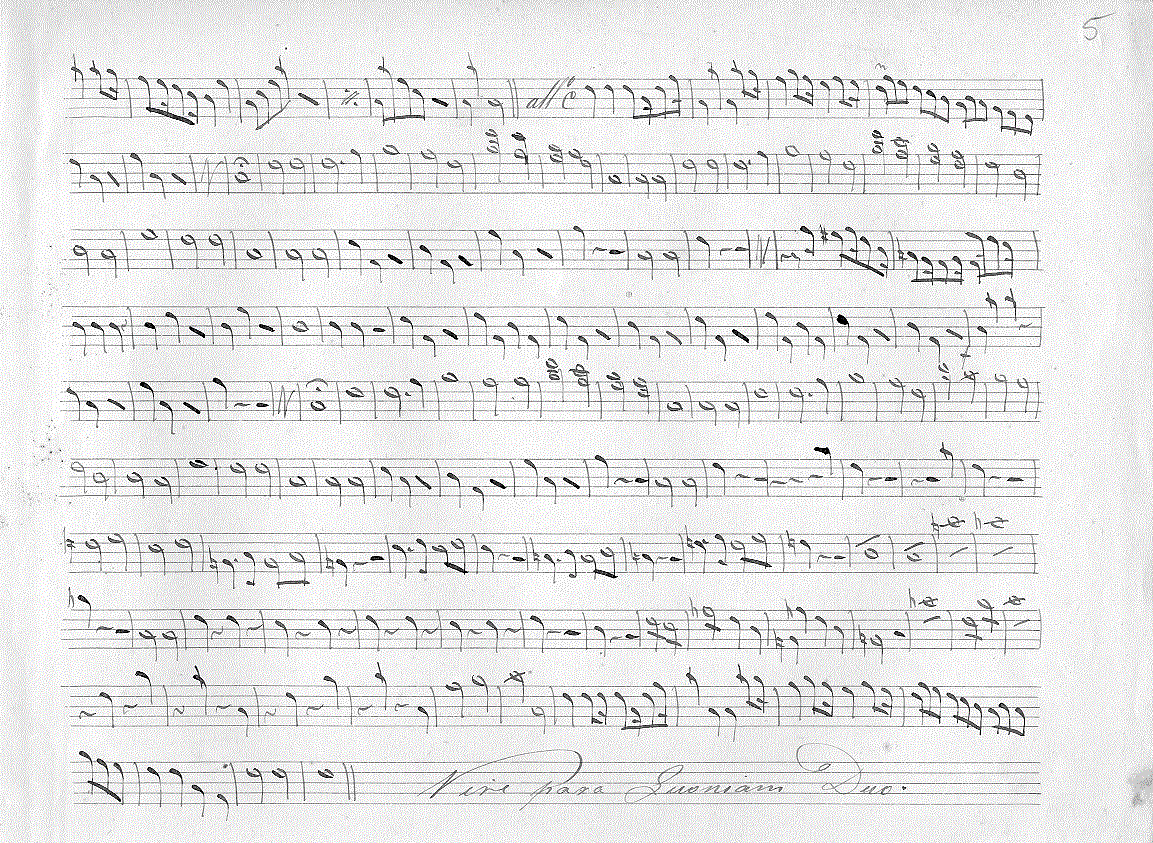 5
all.º
Vire para Quoniam Duo.